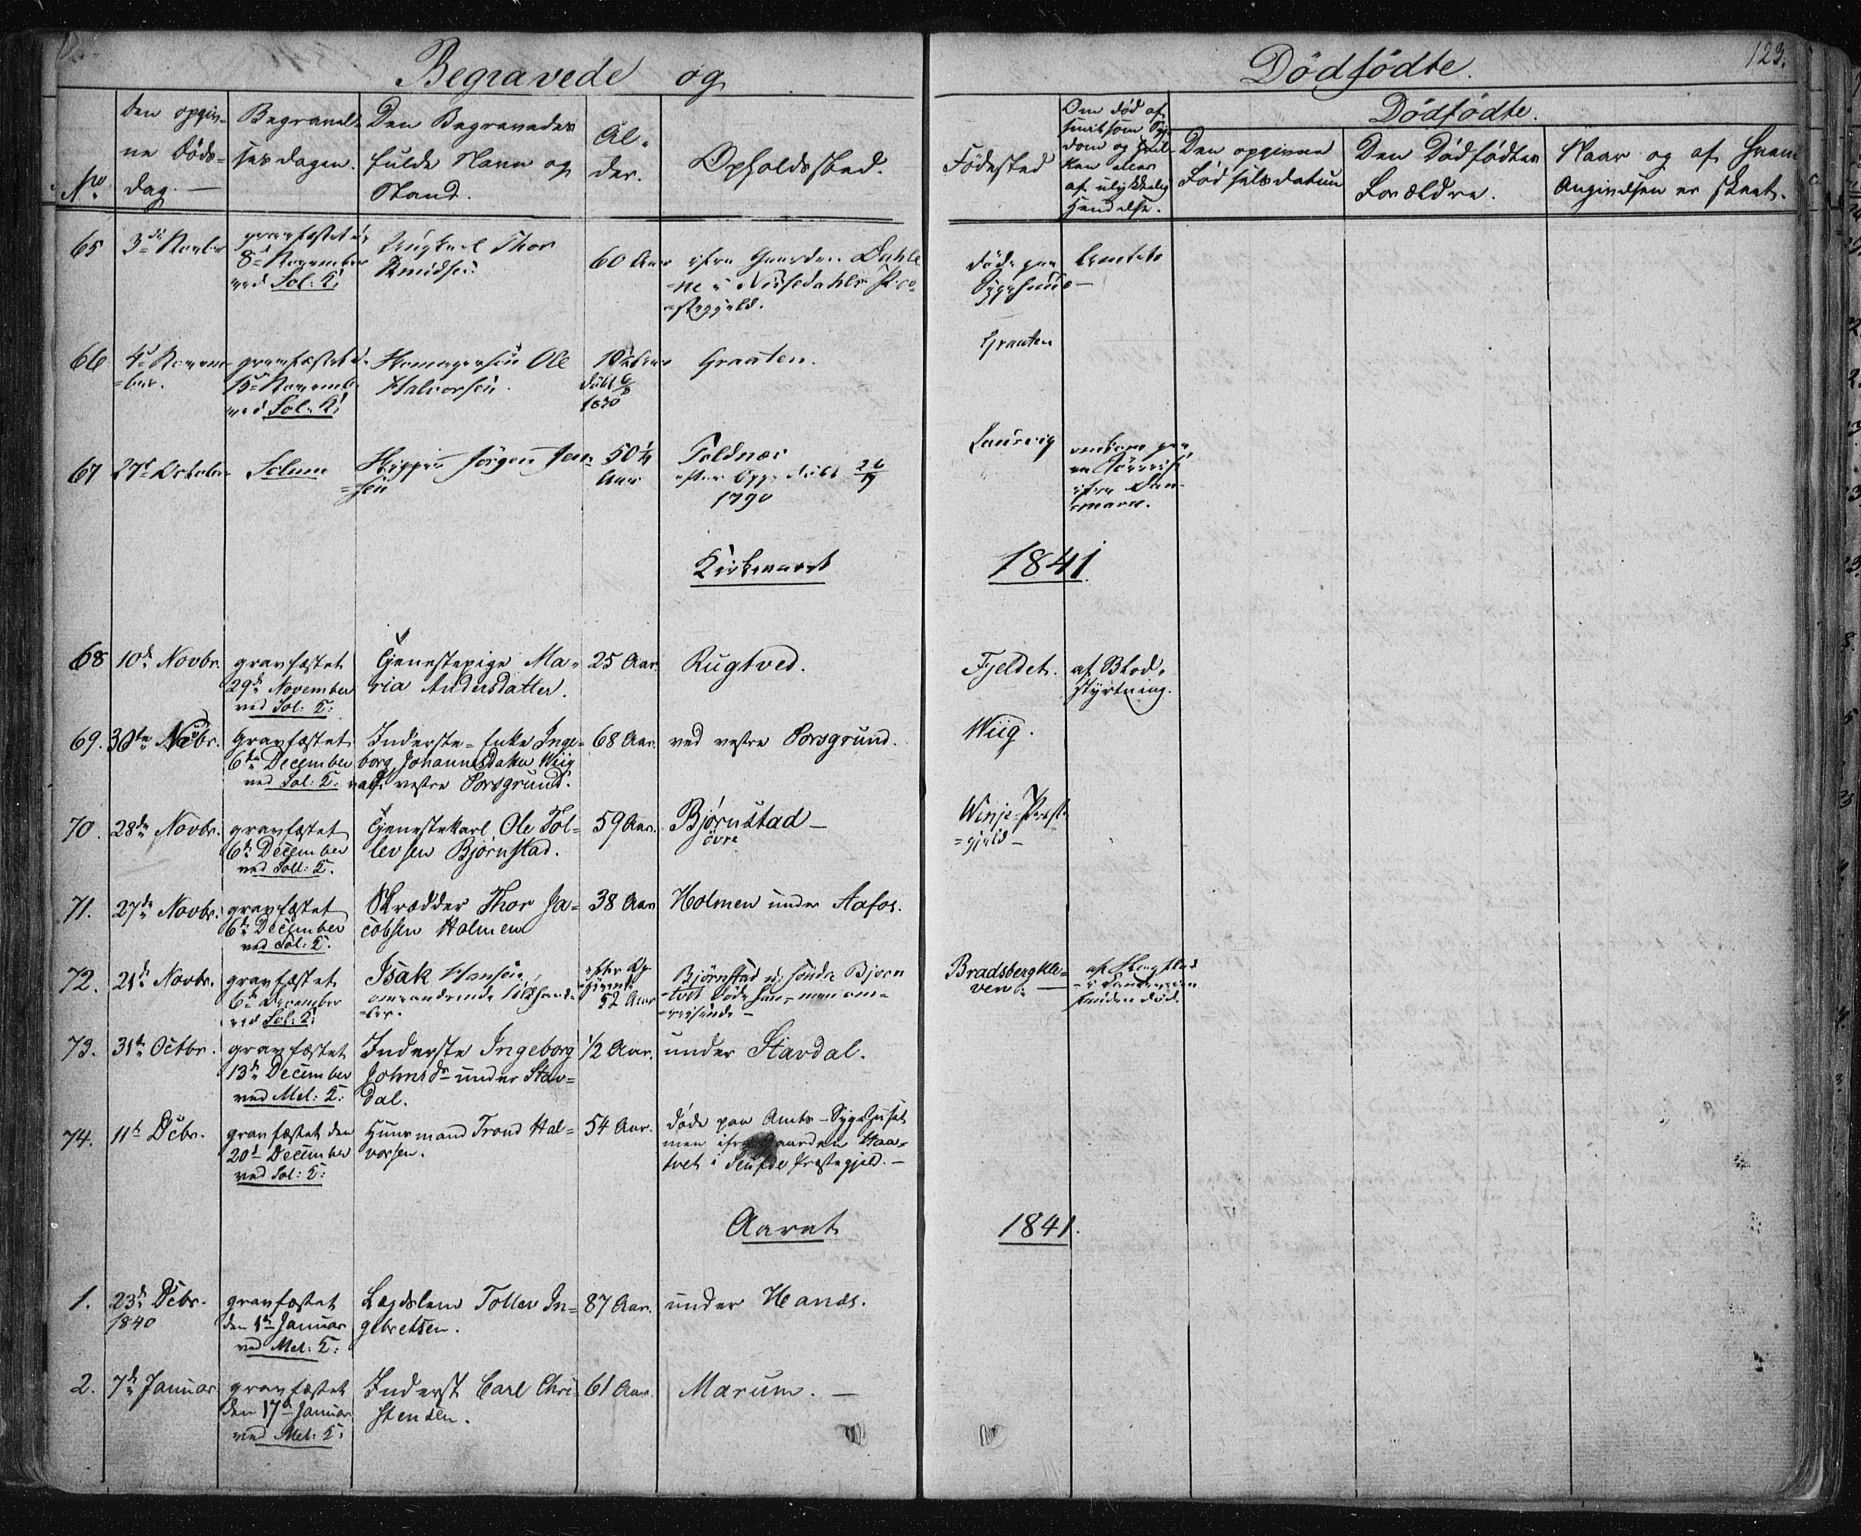 Begravede og Dödfödte.
123.
No
den opgivne Döds-
dag.
Begravel-
sesdagen.
Den Begravedes
fulde Navn og
Stand.
Al-
der.
Opholdssted.
Födested
Om död af
smitsom Syg-
dom og hvil-
ken eller
af ulykkelig
Hendelse.
Dödfödte.
Den opgivne
Födselsdatum
Den Dödfödtes
Forældre.
Naar og af hvem
Angivelsen er skeet.
65 3de Novber
gravfæstet
8de November
ved Sol: K:
Thor
Knudsen
60 Aar
ifra Gaarden Dahle-
ne i Nissedahls Præ-
stegjeld.
döde paa
Sygehuset
66 4de Novem-
ber.
gravfæstet
15de Novemb.
ved Sol: K:
Ole
Halvorsen.
döbt
1830
Graaten.
Graaten
67 27de October
Solum
Skipper Jörgen Jen-
sen
50 1/4
Aar
Toldnæs
döbt 26/9
1790
Laurvig
omkom paa
en
ifra Dan-
mark.
Kirkeaaret 1841.
68 10de Novbr.
gravfæstet
29de November
ved Sol: K:
Tjenestepige Ma-
ria Andersdatter.
25 Aar.
Rugtved.
Fjeldet.
af Blod-
styrtning.
69. 30te Nvbr.
Gravfæstet
6te December
ved Sol: K:
Inderste-Enke Inge-
borg Johannesdatter Wiig
ved vestre Porsgrund.
68 Aar.
ved vestre Porsgrund.
Wiig.
70. 28de Novbr.
gravfæstet
6te December
ved Soll: K.
Tjenestekarl Ole Tol-
levsen Bjørnstad.
59 Aar.
Bjørnstad
övre
Winje Præste-
gjeld
71. 27de Novbr.
gravfæstet
6te December
ved Sol: K.
Skrædder Thor Ja-
cobsen Holmen
38 Aar
Holmen under Aafos.
72. 21de Novbr.
gravfæstet
6te December
ved Sol: K:
Isak Hansen
omvandrende
efter Op-
givende
52 Aar
Bjørnstad
Bradsbergkle-
ven
73. 31te Octbr.
gravfæstet
13de December
ved Mel: K:
Inderste Ingeborg
Johnsdr under Stav-
dal.
1/2 Aar.
under Stavdal.
74. 11te Dcbr.
gravfæstet den
20de December
ved Sol: K:
Huusmand Trond Hal-
vorsen.
54 Aar.
döde paa Amts-Sygehuset
men ifra Gaarden Haa-
tvet i Præstegjeld.
Aaret 1841.
1. 23de Dcbr.
1840
gravfæstet
den 1te Januar
ved Mel: K:
Lægdslem Tollev In-
gebretsen.
87 Aar.
under Hanas.
2. 7de Januar
gravfæstet
den 17de Januar
ved Mel: K:
Inderst Carl Chri-
stensen.
61 Aar.
Marum.